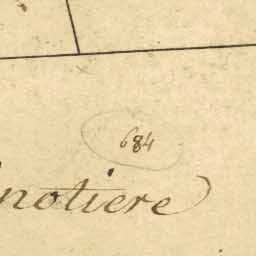 684
notiere